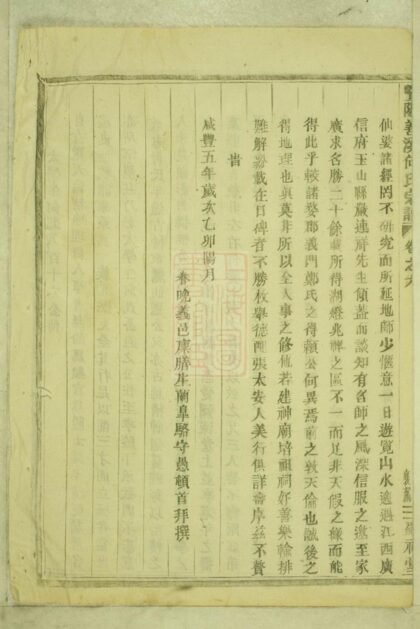 暨陽義溪何氏宗譜 卷之六
仙婆諸經罔不研究而所延地師少愜意一日遊覽山水適遇江西廣
信府玉山縣嚴連祥先生傾蓋而談知有名師之風深信服之邀至家
廣求吉勝二十餘載所得湖燈兆祥之區不一而足非天假之緣而能
得此乎較諸婺郡義門鄭氏之得賴公何異焉前之敦天倫也誠後之
得地理也與莫非所以全人事之修他若建神廟培祖祠好善樂輸排
難解紛載在口碑者不勝枚舉德配張太安人美行俱詳畬序茲不贅
旹
咸豐五年歲次乙卯陽月
眷晚義邑廩膳生蘭皐駱守愚頓首拜撰